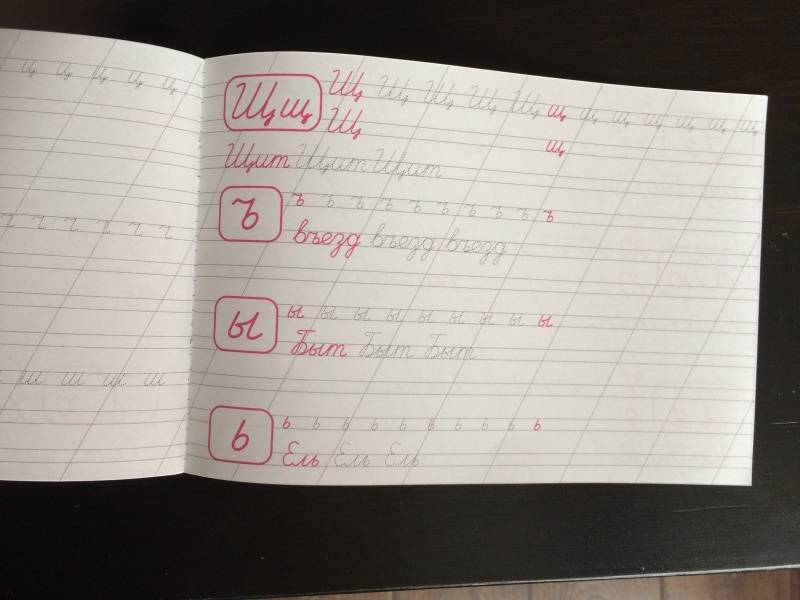 ц ц ц ц ц
ч ч ч ч ч ч
ш ш ш ш
Щщ Щ Щ Щ Щ Щ щ щ щ щ щ щ щ
Щ щ
Щит Щит Щит
ъ ъ ъ ъ ъ ъ ъ ъ ъ ъ ъ
въезд въезд въезд
ы ы ы ы ы ы ы ы ы ы
Быт Быт Быт
ь ь ь ь ь ь ь ь ь ь ь
Ель Ель Ель